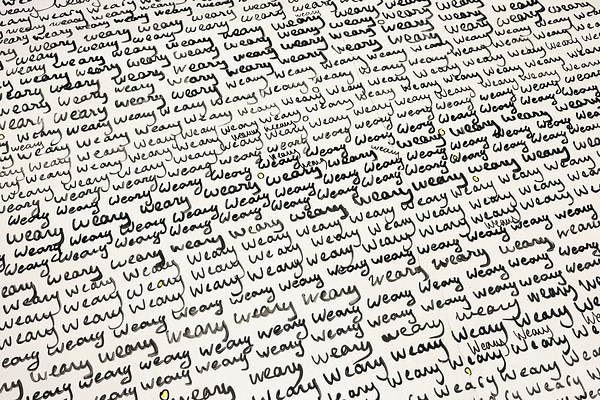 weary weary weary weary weary weary weary
weary weary weary weary weary weary weary weary
weary weary weary weary weary weary weary weary weary
weary weary weary weary weary weary weary weary weary
weary weary weary weary weary weary weary weary weary weary
weary weary weary weary weary weary weary weary weary weary
weary weary weary weary weary weary weary weary weary weary
weary weary weary weary weary weary weary weary weary weary weary
weary weary weary weary weary weary weary weary weary weary weary
weary weary weary weary weary weary weary weary weary weary weary
weary weary weary weary weary weary weary weary weary weary weary
weary weary weary weary weary weary weary weary weary weary weary
weary weary weary weary weary weary weary weary weary weary weary
weary weary weary weary weary weary weary weary weary weary
weary weary weary weary weary weary weary weary weary weary
weary weary weary weary weary weary weary weary weary weary
weary weary weary weary weary weary weary weary weary
weary weary weary weary weary weary weary weary weary
weary weary weary weary weary weary weary weary weary
weary weary weary weary weary weary weary weary
weary weary weary weary weary weary weary weary
weary weary weary weary weary weary weary
weary weary weary weary weary weary
weary weary weary weary weary
weary weary weary